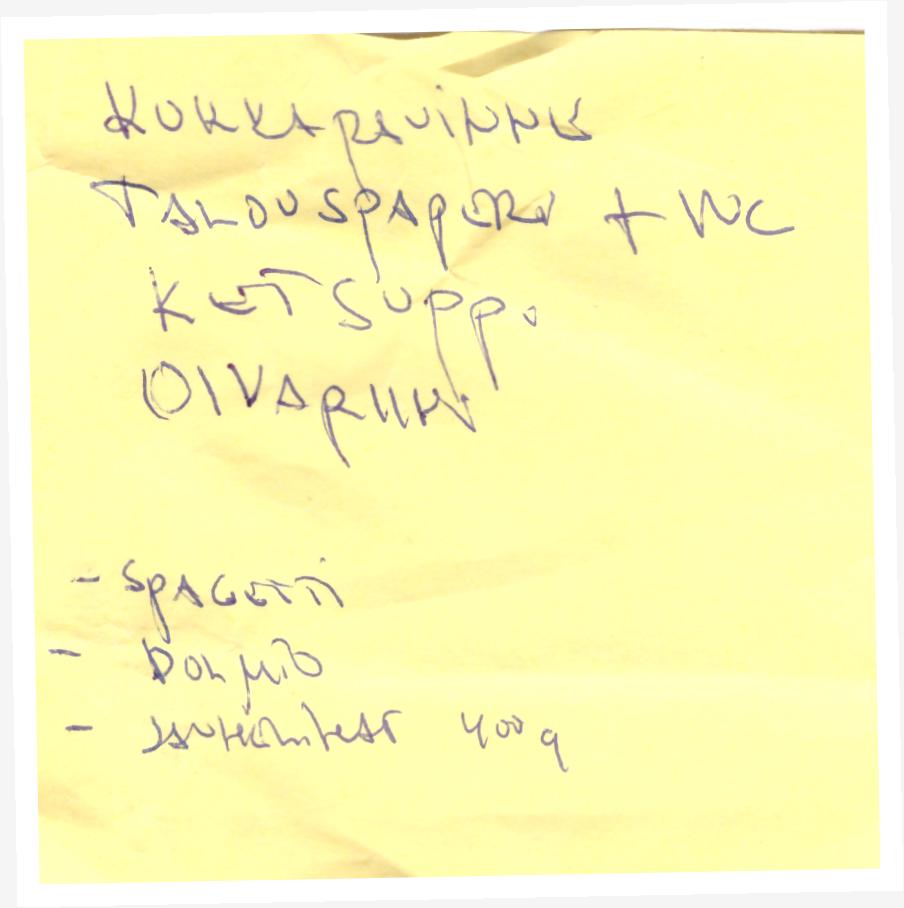 KUKKARAVINNE
TALOUSPAPERI + WC
KETSUPPI
OIVARIINI
- SPAGETTI
- DOLMIO
- JAUHELIHAA 400 g